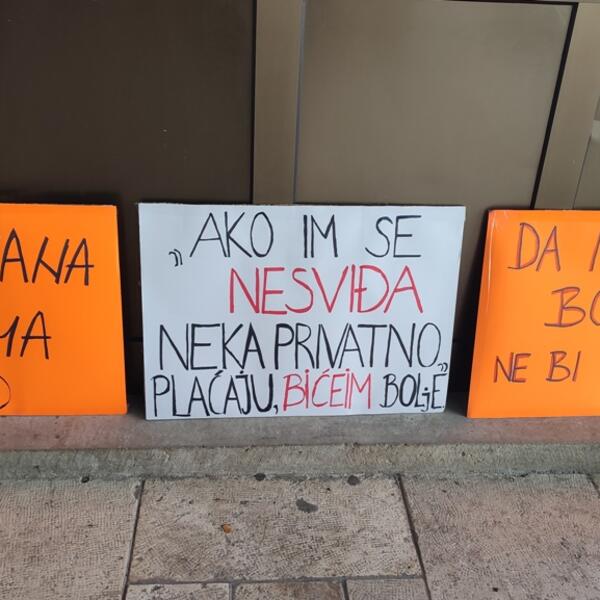 ANA
MA
O
„AKO IM SE
NESVIĐA
NEKA PRIVATNO
PLAĆAJU, BIĆEIM BOLjE„
DA
BO
NE BI